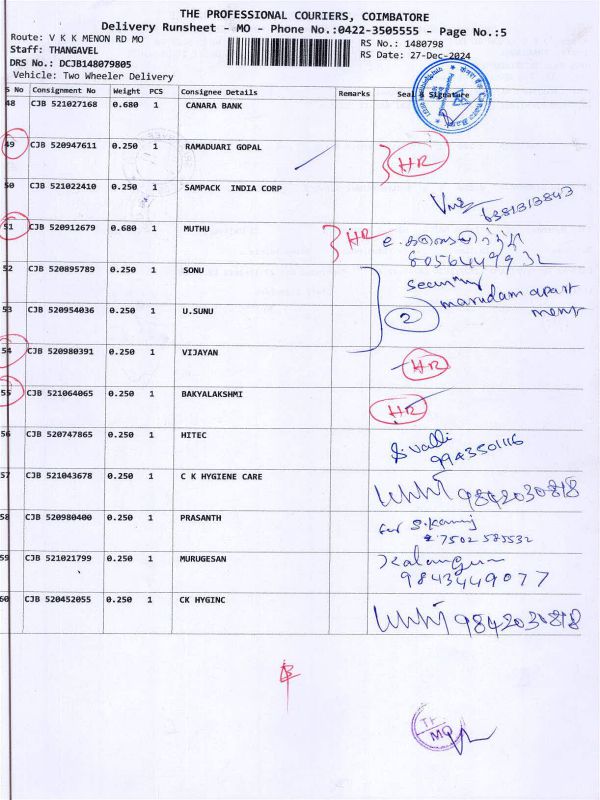 THE PROFESSIONAL COURIERS, COIMBATORE
Delivery Runsheet - MO - Phone No.:0422-3505555 - Page No.:5
Route: V K K MENON RD MO
RS No.: 1480798
Staff: THANGAVEL
RS Date: 27-Dec-2024
DRS No.: DCJB148079805
Vehicle: Two Wheeler Delivery
S No Consignment No Weight PCS Consignee Details Remarks Seal & Signature
48 CJB 521027168 0.680 1 CANARA BANK
49 CJB 520947611 0.250 1 RAMADUARI GOPAL HR
50 CJB 521022410 0.250 1 SAMPACK INDIA CORP
6381313843
51 CJB 520912679 0.680 1 MUTHU HR
8056449932
52 CJB 520895789 0.250 1 SONU security
marudam apart
ment
53 CJB 520954036 0.250 1 U.SUNU 2
54 CJB 520980391 0.250 1 VIJAYAN HR
55 CJB 521064065 0.250 1 BAKYALAKSHMI HR
56 CJB 520747865 0.250 1 HITEC
9943501116
57 CJB 521043678 0.250 1 C K HYGIENE CARE 9842030818
58 CJB 520980400 0.250 1 PRASANTH
7502585532
59 CJB 521021799 0.250 1 MURUGESAN
9843449077
60 CJB 520452055 0.250 1 CK HYGINC 9842030818
MO